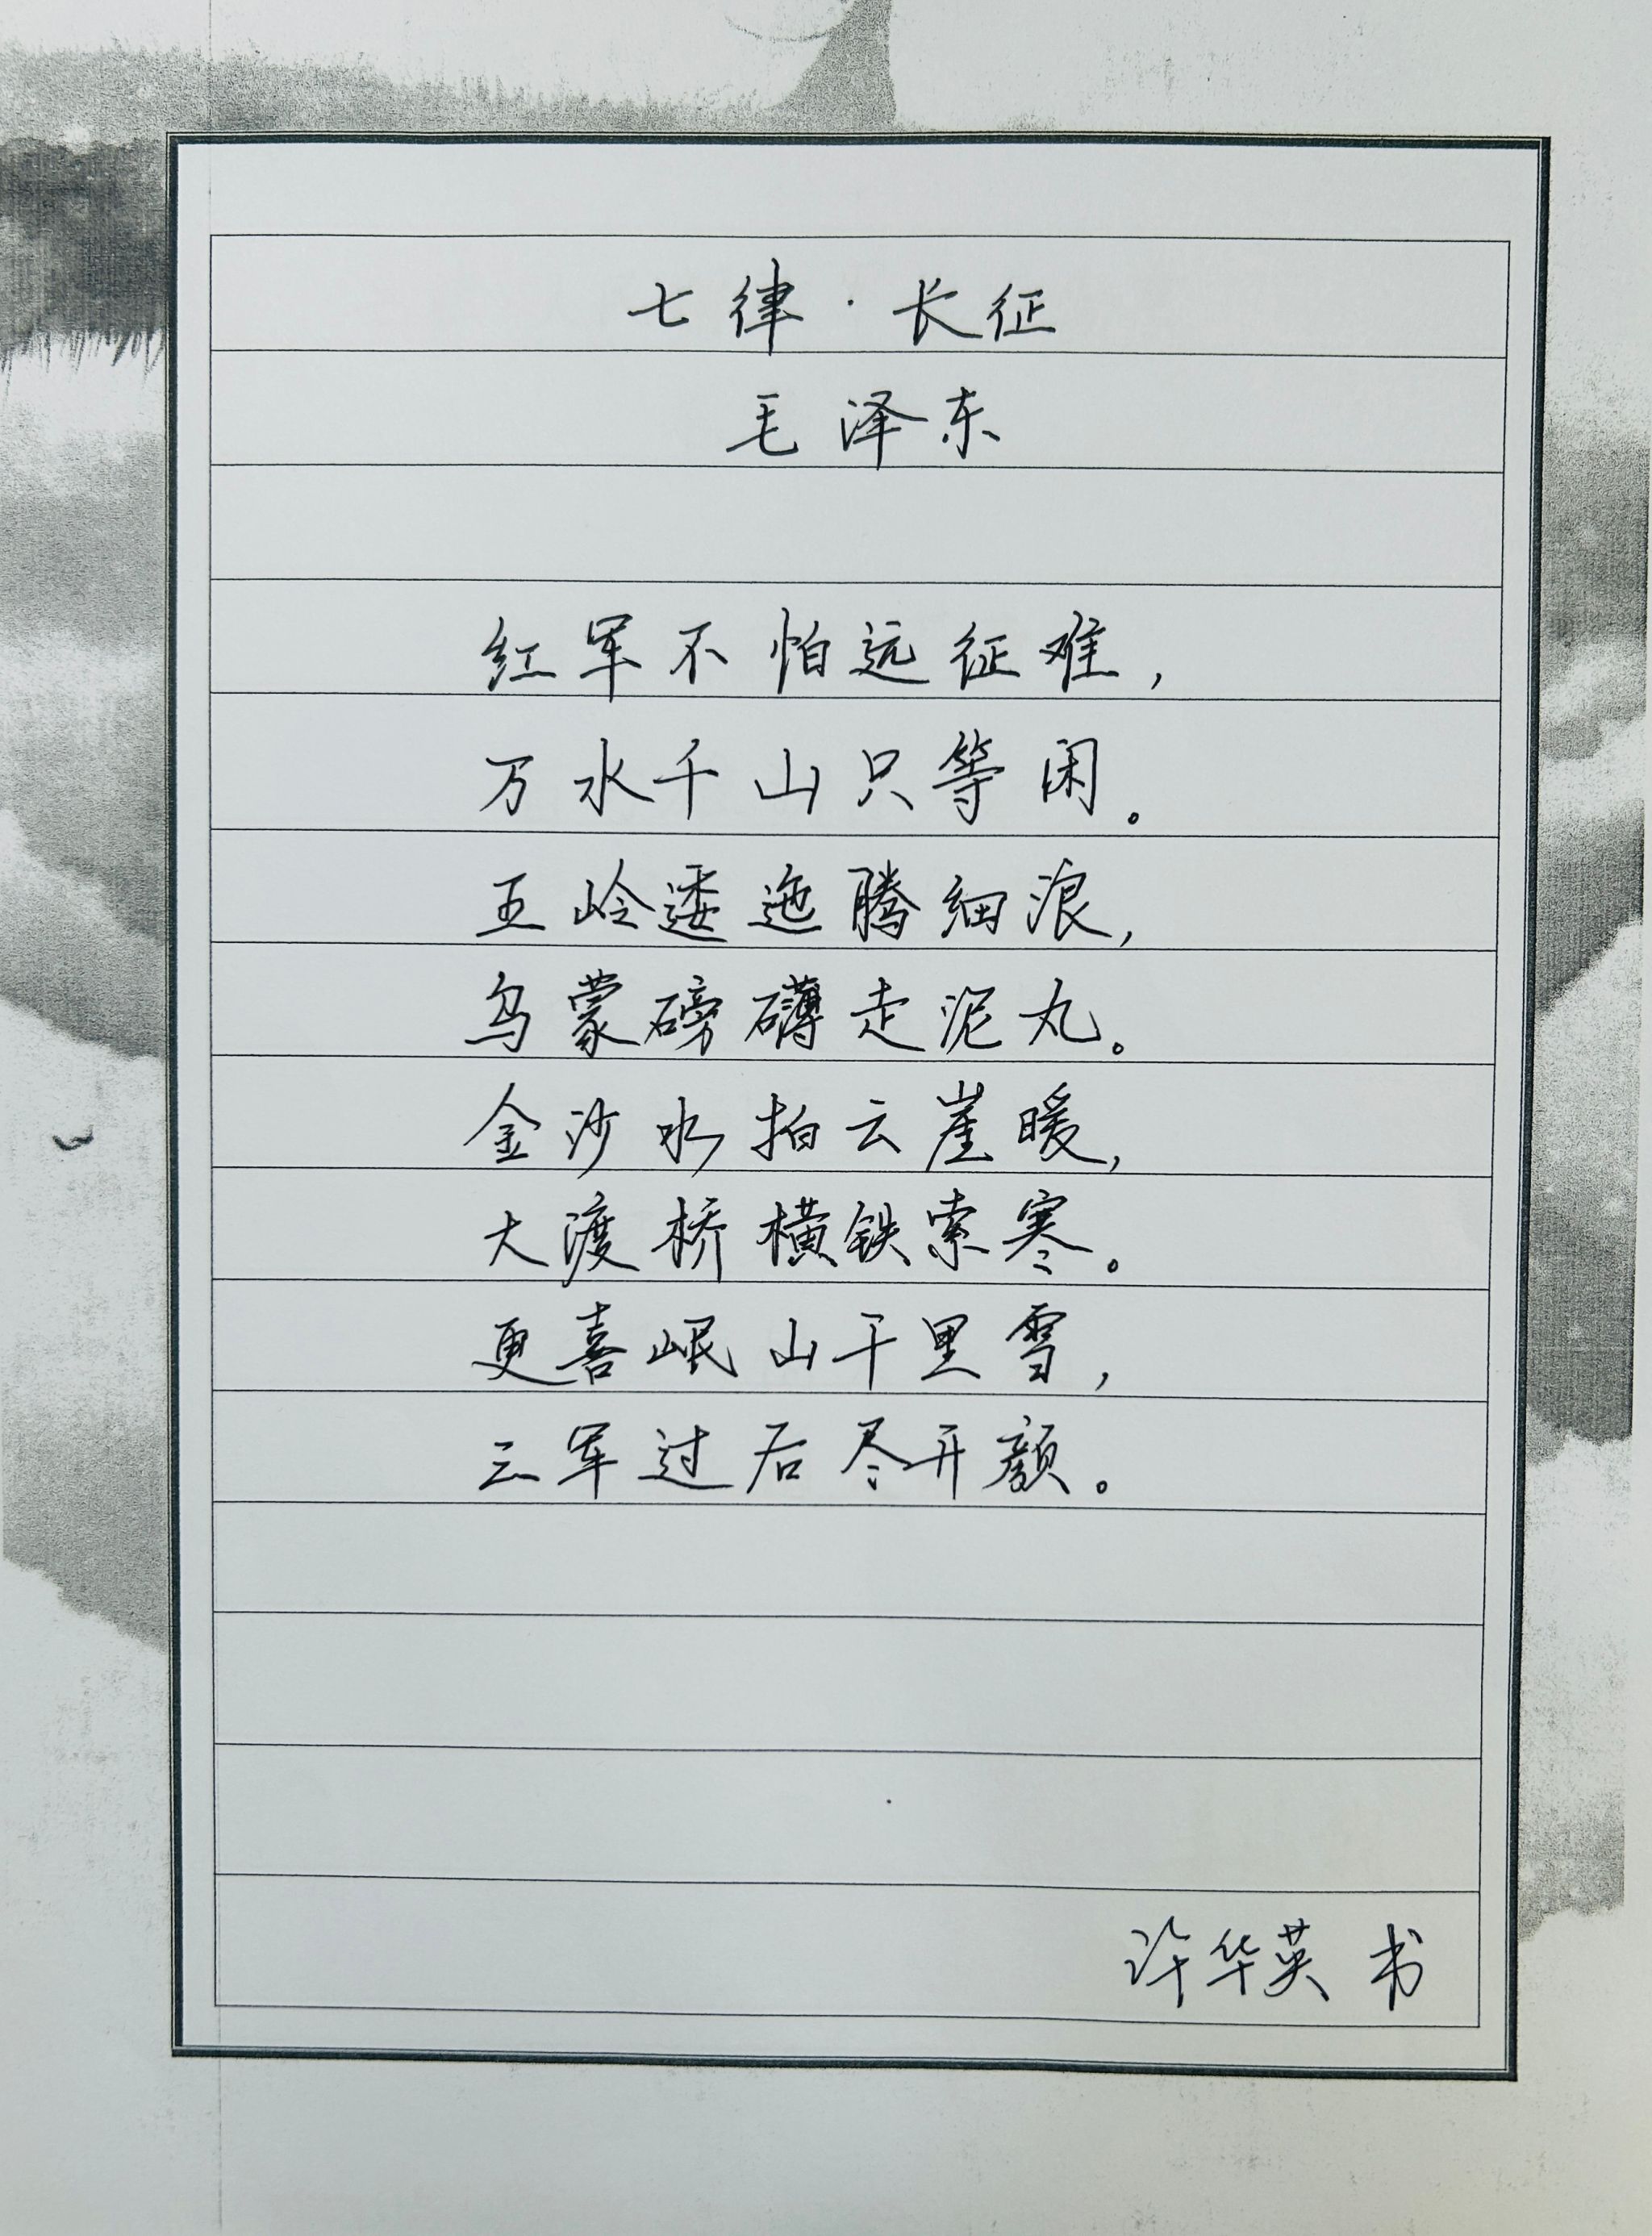 七律·长征
毛泽东
红军不怕远征难,
万水千山只等闲。
五岭逶迤腾细浪,
乌蒙磅礴走泥丸。
金沙水拍云崖暖,
大渡桥横铁索寒。
更喜岷山千里雪,
三军过后尽开颜。
许华英 书